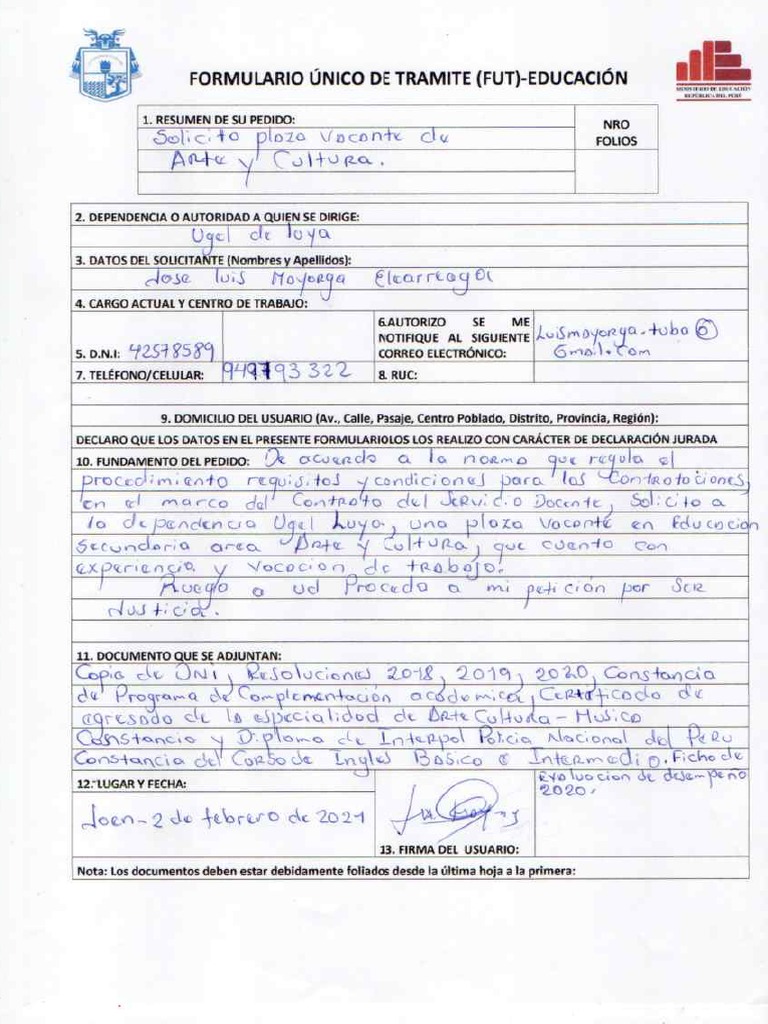 FORMULARIO ÚNICO DE TRAMITE (FUT)-EDUCACIÓN
MINISTERIO DE EDUCACIÓN
REPÚBLICA DEL PERÚ
1. RESUMEN DE SU PEDIDO:
NRO
FOLIOS
Solicito plaza vacante de
Arte y Cultura.
2. DEPENDENCIA O AUTORIDAD A QUIEN SE DIRIGE:
Ugel de luya
3. DATOS DEL SOLICITANTE (Nombres y Apellidos):
Jose luis Mayorga
4. CARGO ACTUAL Y CENTRO DE TRABAJO:
5. D.N.I: 42578589
6.AUTORIZO SE ME
NOTIFIQUE AL SIGUIENTE
CORREO ELECTRÓNICO:
Luismayorga-tuba @
Gmail.com
7. TELÉFONO/CELULAR: 949793322
8. RUC:
9. DOMICILIO DEL USUARIO (Av., Calle, Pasaje, Centro Poblado, Distrito, Provincia, Región):
DECLARO QUE LOS DATOS EN EL PRESENTE FORMULARIOLOS LOS REALIZO CON CARÁCTER DE DECLARACIÓN JURADA
10. FUNDAMENTO DEL PEDIDO: De acuerdo a la norma que regula el
procedimiento requisitos y condiciones para las Contrataciones,
en el marco del Contrato del Servicio Docente, Solicito a
la dependencia Ugel Luya, una plaza vacante en Educacion
Secundaria area Arte y Cultura, que cuento con
experiencia y vocacion de trabajo.
Ruego a ud Proceda a mi petición por ser
Justicia.
11. DOCUMENTO QUE SE ADJUNTAN:
Copia de DNI, Resoluciones 2018, 2019, 2020, Constancia
de Programa de Complementación academica, Certificado de
egresado de la especialidad de Arte Cultura - Musica
Constancia y Diploma de Interpol Policia Nacional del Peru
Constancia del Curso de Ingles Basico e Intermedio. Ficha de
Evaluacion de desempeño
2020.
12. LUGAR Y FECHA:
Jaen - 2 de febrero de 2021
13. FIRMA DEL USUARIO:
Nota: Los documentos deben estar debidamente foliados desde la última hoja a la primera: